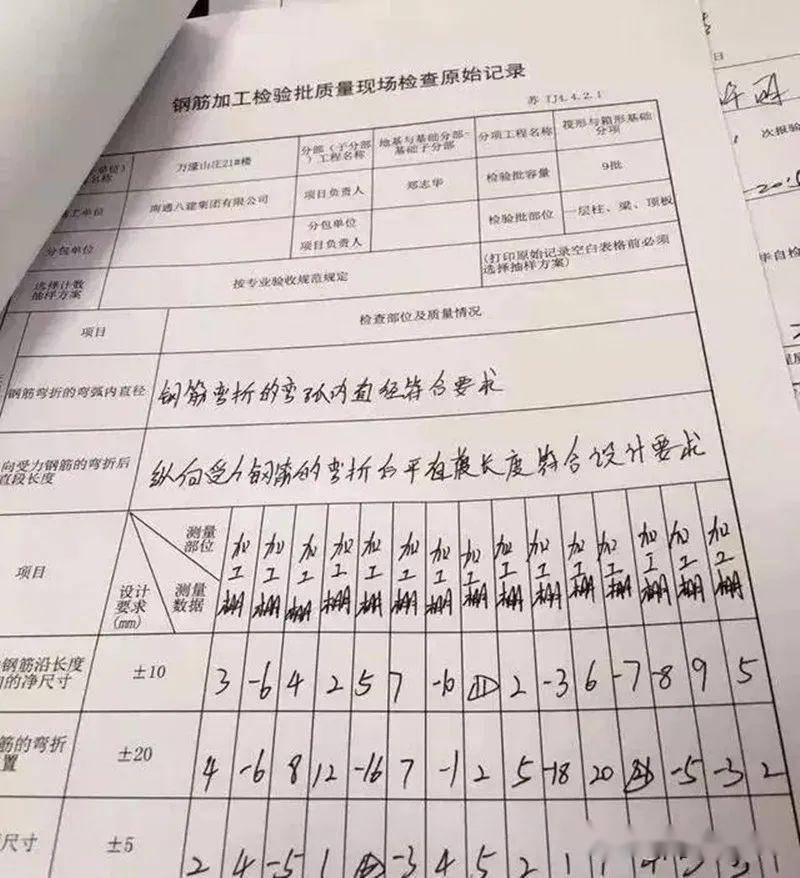 钢筋加工检验批质量现场检查原始记录
苏 TJ4.4.2.1
万濠山庄21#楼
分部(子分部)工程名称
地基与基础分部-基础子分部
分项工程名称
筏形与箱形基础分项
工单位
南通八建集团有限公司
项目负责人
郑志华
检验批容量
9批
分包单位
分包单位项目负责人
检验批部位
一层柱、梁、顶板
选择计数抽样方案
按专业验收规范规定
(打印原始记录空白表格前必须选择抽样方案)
项目
检查部位及质量情况
钢筋弯折的弯弧内直径
钢筋弯折的弯弧内直径符合要求
向受力钢筋的弯折后
直段长度
纵向受力钢筋的弯折的平直段长度符合设计要求
项目
设计要求(mm)
测量部位
测量数据
加工棚 加工棚 加工棚 加工棚 加工棚 加工棚 加工棚 加工棚 加工棚 加工棚 加工棚 加工棚 加工棚 加工棚 加工棚
钢筋沿长度
的净尺寸
±10
3 -6 4 2 5 7 -6 11 2 -3 6 -7 -8 9 5
筋的弯折
置
±20
4 -6 8 12 -16 7 -1 2 5 -18 20 -5 -3 2
尺寸
±5
2 4 -5 1 -3 4 5 2 1 1
次报验